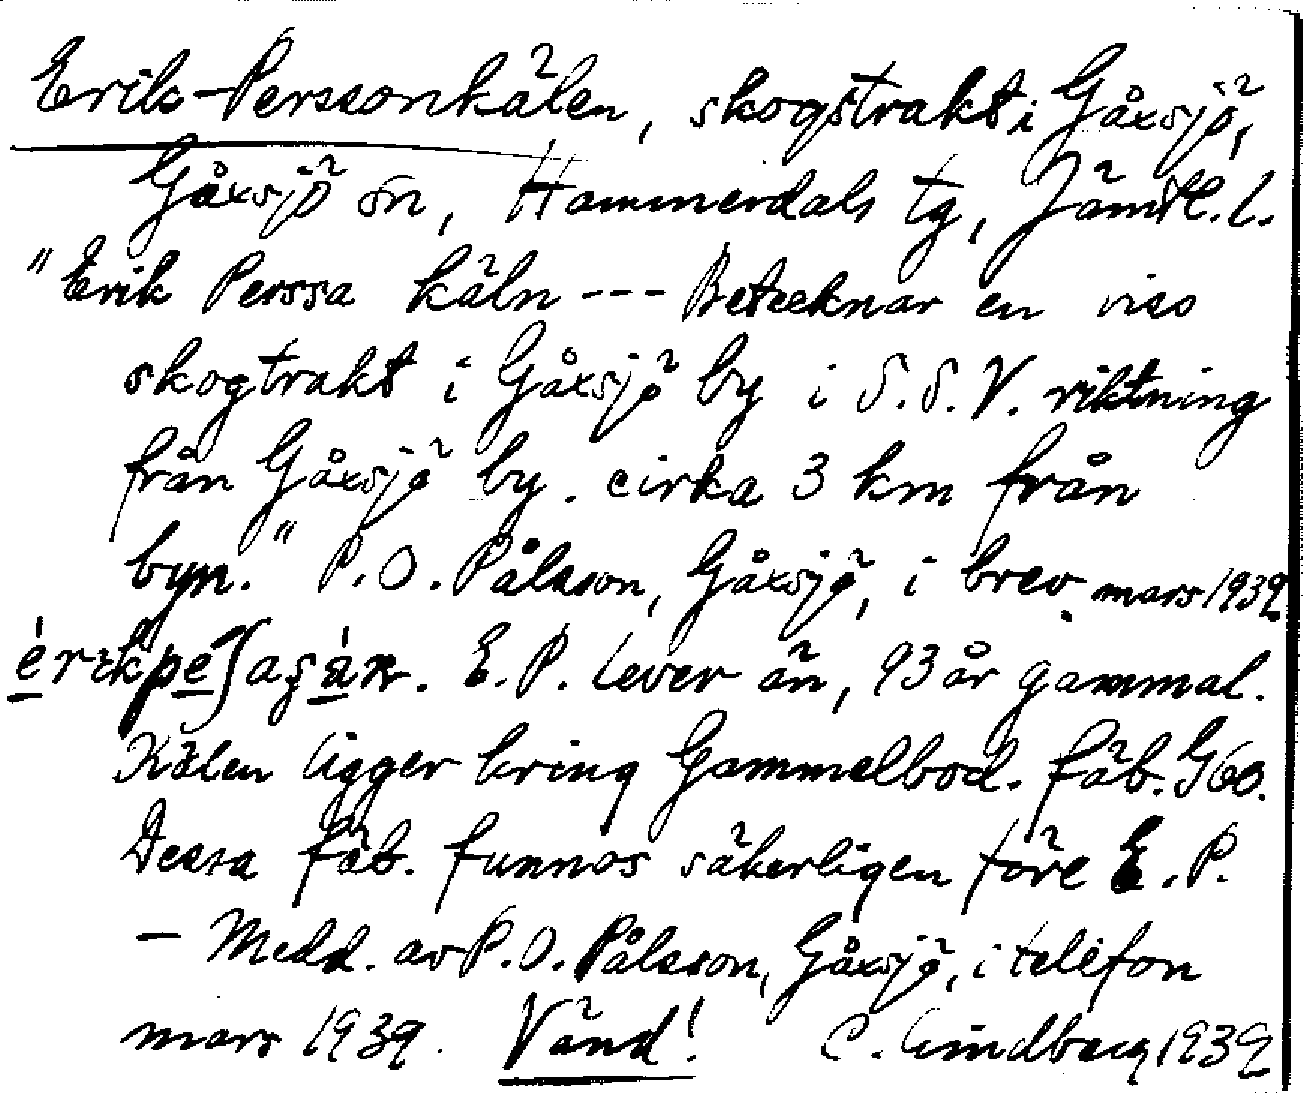 Erik-Perssonkälen, skogstrakt i Gåxsjö,
Gåxsjö sn, Hammerdals tg, Jämtl. l.
"Erik Perssa käln --- Betecknar en viss
skogtrakt i Gåxsjö by i S.S.V. riktning
från Gåxsjö by. cirka 3 km från
byn." P.O. Pålsson, Gåxsjö, i brev mars 1939.
E.P. lever än, 93 år gammal.
Kälen ligger kring Gammelbod. fäb. G60.
Dessa fäb. funnos säkerligen före E.P.
- Medd. av P.O. Pålsson, Gåxsjö, i telefon
mars 1939. Vänd! C. Lindberg 1939